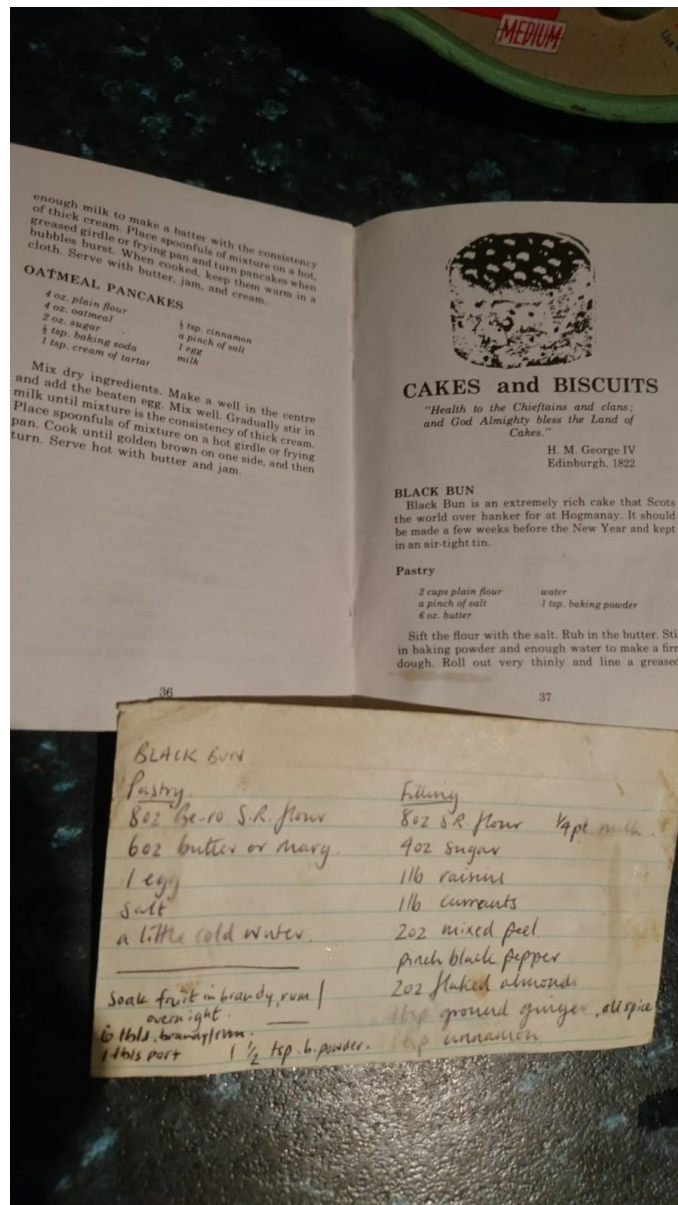 MEDIUM
enough milk to make a batter with the consistency
of thick cream. Place spoonfuls of mixture on a hot,
greased girdle or frying pan and turn pancakes when
bubbles burst. When cooked, keep them warm in a
cloth. Serve with butter, jam, and cream.
OATMEAL PANCAKES
4 oz. plain flour
4 oz. oatmeal
2 oz. sugar
½ tsp. baking soda
1 tsp. cream of tartar
½ tsp. cinnamon
a pinch of salt
1 egg
milk
Mix dry ingredients. Make a well in the centre
and add the beaten egg. Mix well. Gradually stir in
milk until mixture is the consistency of thick cream.
Place spoonfuls of mixture on a hot girdle or frying
pan. Cook until golden brown on one side, and then
turn. Serve hot with butter and jam.
36
CAKES and BISCUITS
"Health to the Chieftains and clans;
and God Almighty bless the Land of
Cakes."
H. M. George IV
Edinburgh, 1822
BLACK BUN
Black Bun is an extremely rich cake that Scots
the world over hanker for at Hogmanay. It should
be made a few weeks before the New Year and kept
in an air-tight tin.
Pastry
2 cups plain flour
a pinch of salt
6 oz. butter
water
1 tsp. baking powder
Sift the flour with the salt. Rub in the butter. Sti
in baking powder and enough water to make a firm
dough. Roll out very thinly and line a greased
37
BLACK BUN
Pastry
8oz Be-ro S.R. flour
6oz butter or marg.
1 egg
salt
a little cold water.
Soak fruit in brandy, rum /
overnight.
6 tbls. brandy/rum.
1 tbls port
1 ½ tsp. b. powder.
Filling
8oz SR flour ¼ pt milk.
4oz sugar
1lb raisins
1lb currants
2oz mixed peel
pinch black pepper
2oz flaked almonds
1tsp ground ginger, all spice
1tsp cinnamon